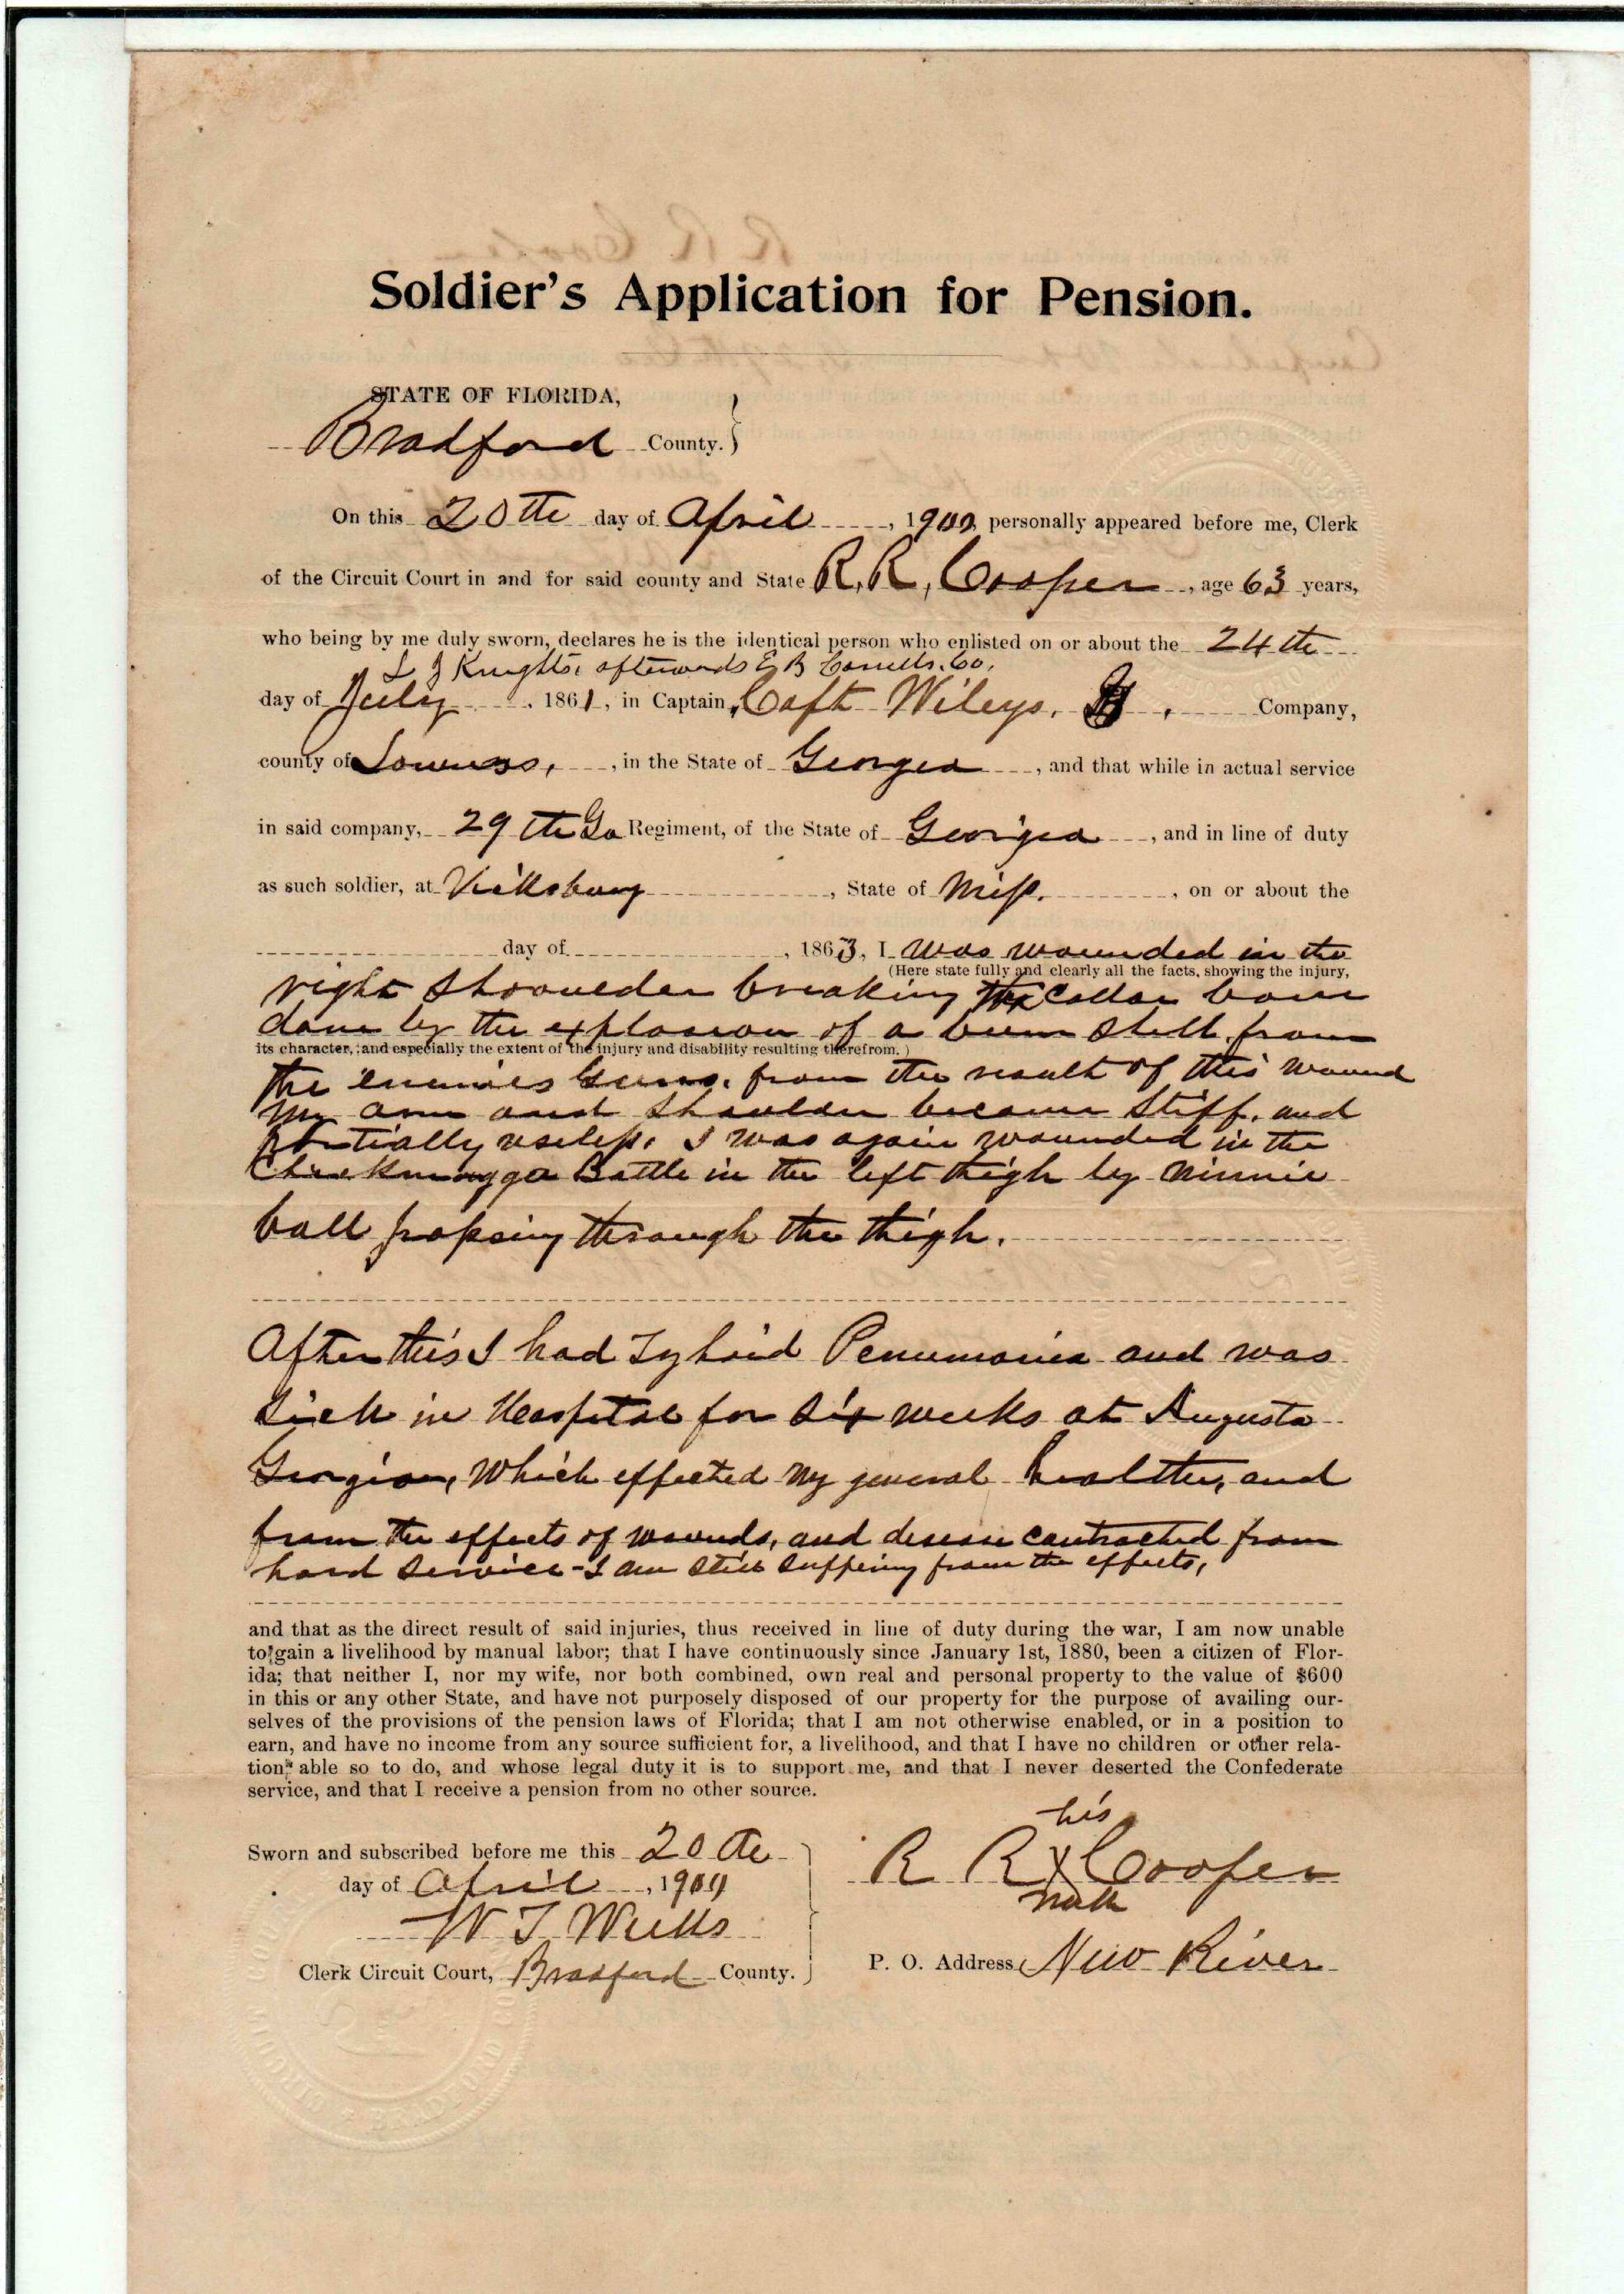 Soldier's Application for Pension.
STATE OF FLORIDA,
Bradford County. }
On this 20th day of April, 190 personally appeared before me, Clerk
of the Circuit Court in and for said county and State R. R. Cooper, age 63 years,
who being by me duly sworn, declares he is the identical person who enlisted on or about the 24th
Knights, afterwards E B Co.
day of July, 1861, in Captain, Capt Wileys, Company,
county of Lowness, in the State of Georgea, and that while in actual service
in said company, 29th Ga Regiment, of the State of Georgea, and in line of duty
as such soldier, at Vicksburg, State of Miss., on or about the
day of , 1863, I was wounded in the
(Here state fully and clearly all the facts, showing the injury,
right shoulder breaking the Collar bone
done by the explosion of a bum shell from
its character, and especially the extent of the injury and disability resulting therefrom.)
the enemies Guns. from the result of this wound
my arm and shoulder became stiff, and
partially useless. I was again wounded in the
Battle in the left thigh by minnie
ball passing through the thigh.
After this I had Penumonia and was
Sick in Hospital for six weeks at Augusta
Georgia, which effected my general health, and
from the effects of wounds, and desease contracted from
hard service - I am still suffering from the effects,
and that as the direct result of said injuries, thus received in line of duty during the war, I am now unable
to gain a livelihood by manual labor; that I have continuously since January 1st, 1880, been a citizen of Flor-
ida; that neither I, nor my wife, nor both combined, own real and personal property to the value of $600
in this or any other State, and have not purposely disposed of our property for the purpose of availing our-
selves of the provisions of the pension laws of Florida; that I am not otherwise enabled, or in a position to
earn, and have no income from any source sufficient for, a livelihood, and that I have no children or other rela-
tion able so to do, and whose legal duty it is to support me, and that I never deserted the Confederate
service, and that I receive a pension from no other source.
his
Sworn and subscribed before me this 20th
R R X Cooper
day of April, 190
mark
W T Weeks
Clerk Circuit Court, Bradford County. }
P. O. Address New River